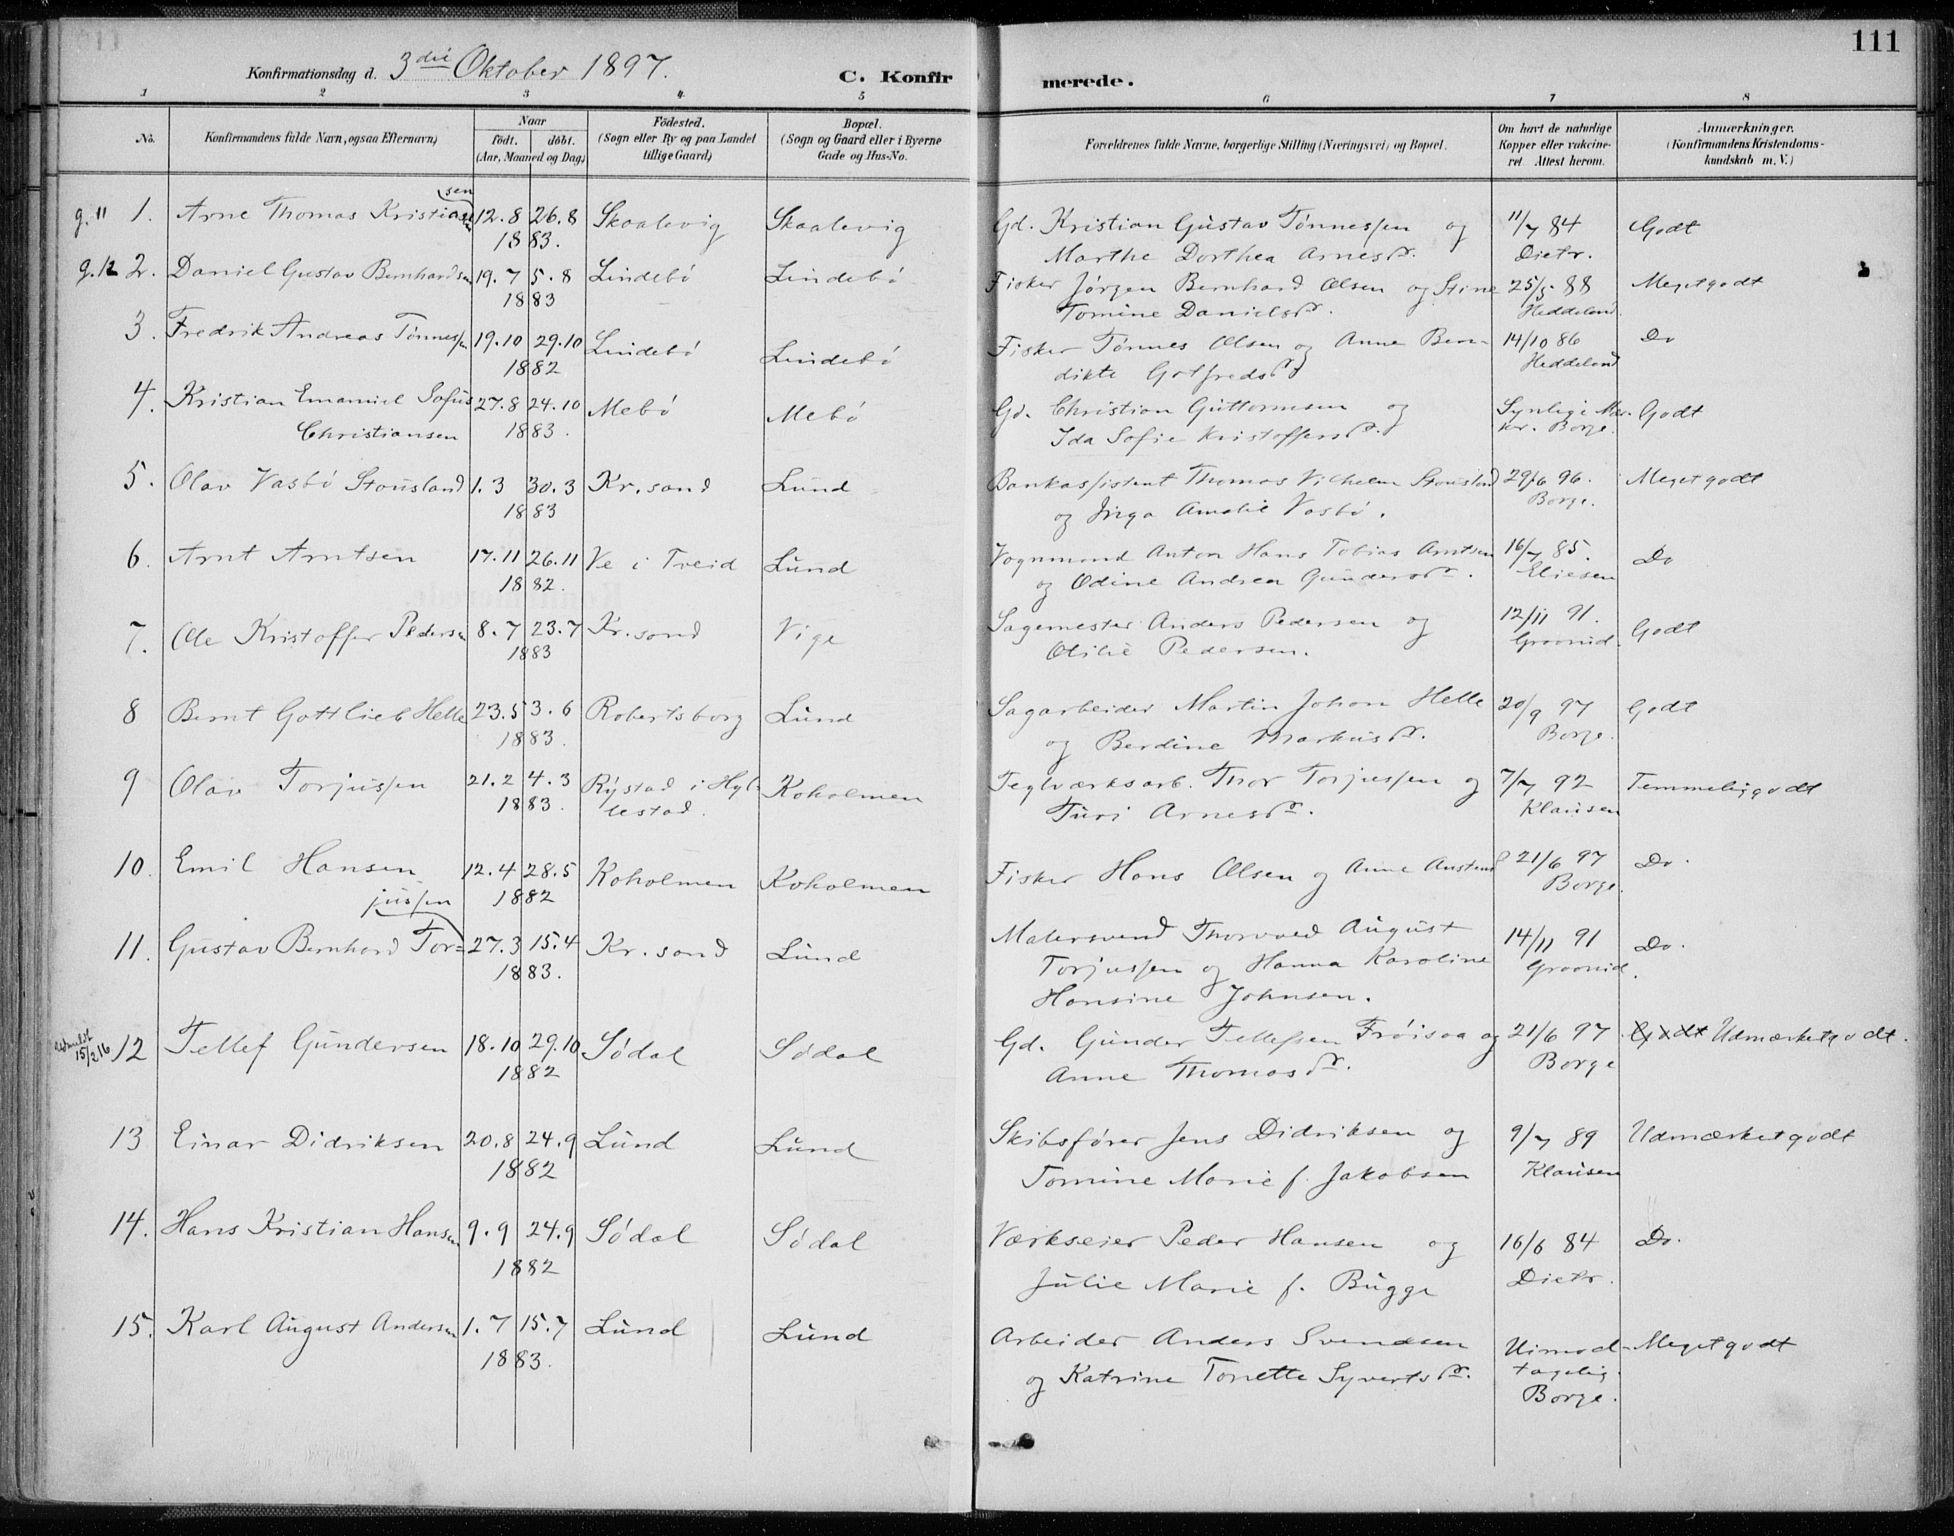 111
Konfirmationsdag d. 3die Oktober 1897.
C. Konfirmerede.
1 2 3 4 5 6 7 8
No.
Konfirmandens fulde Navn, ogsaa Efternavn)
Naar
födt. döbt.
(Aar, Maaned og Dag)
Födested.
(Sogn eller By og paa Landet
tillige Gaard)
Bopæl.
(Sogn og Gaard eller i Byerne
Gade og Hus-No.
Forældrenes fulde Navne, borgerlige Stilling (Næringsvei) og Bopæl.
Om havt de naturlige
Kopper eller vakcine-
ret. Attest herom.
Anmærkninger.
(Konfirmandens Kristendoms-
kundskab m. V.)
g. 11 1. Arne Thomas Kristiansen 12.8 26.8 Skaalevig Skaalevig Gd. Kristian Gustav Tønnessen og 11/7 84 Godt
1883. Marthe Dorthea Arnesdr. Dietr.
g. 12 2. Daniel Gustav Bernhardsen 19.7 5.8 Lindebø Lindebø Fisker Jørgen Bernhard Olsen og Stine 25/5 88 Megetgodt
1883 Tomine Danielsdr. Heddeland
3. Fredrik Andreas Tønnessen 19.10 29.10 Lindebø Lindebø Fisker Tønnes Olsen og Anne Ben- 14/10 86 Do
1882 dikte Gotfredsdr Heddeland
4. Kristian Emanuel Sofus 27.8 24.10 Mebø Mebø Gd. Christian Guttormsen og Synlige Mær- Godt
Christiansen 1883. Ida Sofie Kristoffersdr. ker. Borge.
5. Olav Vasbø Stousland 1.3 30.3 Kr.sand Lund Bankassistent Thomas Vilhelm Stousland 29/6 96. Megetgodt
1883 og Inga Amalie Vasbø. Borge.
6. Arnt Arntsen 17.11 26.11 Ve i Tveid Lund Vognmand Anton Hans Tobias Arntsen 16/7 85. Do
1882. og Odine Andrea Gundersdr. Eliesen
7. Ole Kristoffer Pedersen 8.7 23.7 Kr.sand Vige Sagemester Anders Pedersen og 12/11 91. Godt
1883 Otilie Pedersen. Groonid.
8 Bernt Gottlieb Helle 23.5 3.6 Robertsborg Lund Sagarbeider Martin Johan Helle 20/9 97 Godt
1883. og Berdine Markusdr. Borge.
9 Olav Torjussen 21.2 4.3 Rystad i Hyl- Koholmen Teglværksarb. Thor Torjussen og 7/7 92 Temmeliggodt
1883. lestad. Turi Arnesdr. Klausen
10. Emil Hansen 12.4 28.5 Koholmen Koholmen Fisker Hans Olsen og Anne Austensd 21/6 97 Do.
1882 Borge.
jussen
11. Gustav Bernhard Tor= 27.3 15.4 Kr.sand Lund Malersvend Thorvald August 14/11 91 Do.
1883. Torjussen og Hanna Karoline Groonid.
Hansine Johnsen.
15/2 16 12 Tellef Gundersen 18.10 29.10 Sødal Sødal Gd. Gunder Tellefsen Frøisaa og 21/6 97 Godt Udmærketgodt.
1882 Anne Thomasdr. Borge
13 Einar Didriksen 20.8 24.9 Lund Lund Skibsfører Jens Didriksen og 9/7 89 Udmærketgodt
1882 Tomine Marie f. Jakobsen Klausen
14. Hans Kristian Hansen 9.9 24.9 Sødal Sødal Værkseier Peder Hansen og 16/6 84 Do.
1882 Julie Marie f. Bugge Dietr.
15. Karl August Andersen 1.7 15.7 Lund Lund Arbeider Anders Svendsen Uimod- Megetgodt
1883. og Katrine Tonette Syvertsdr. tagelig.
Borge.